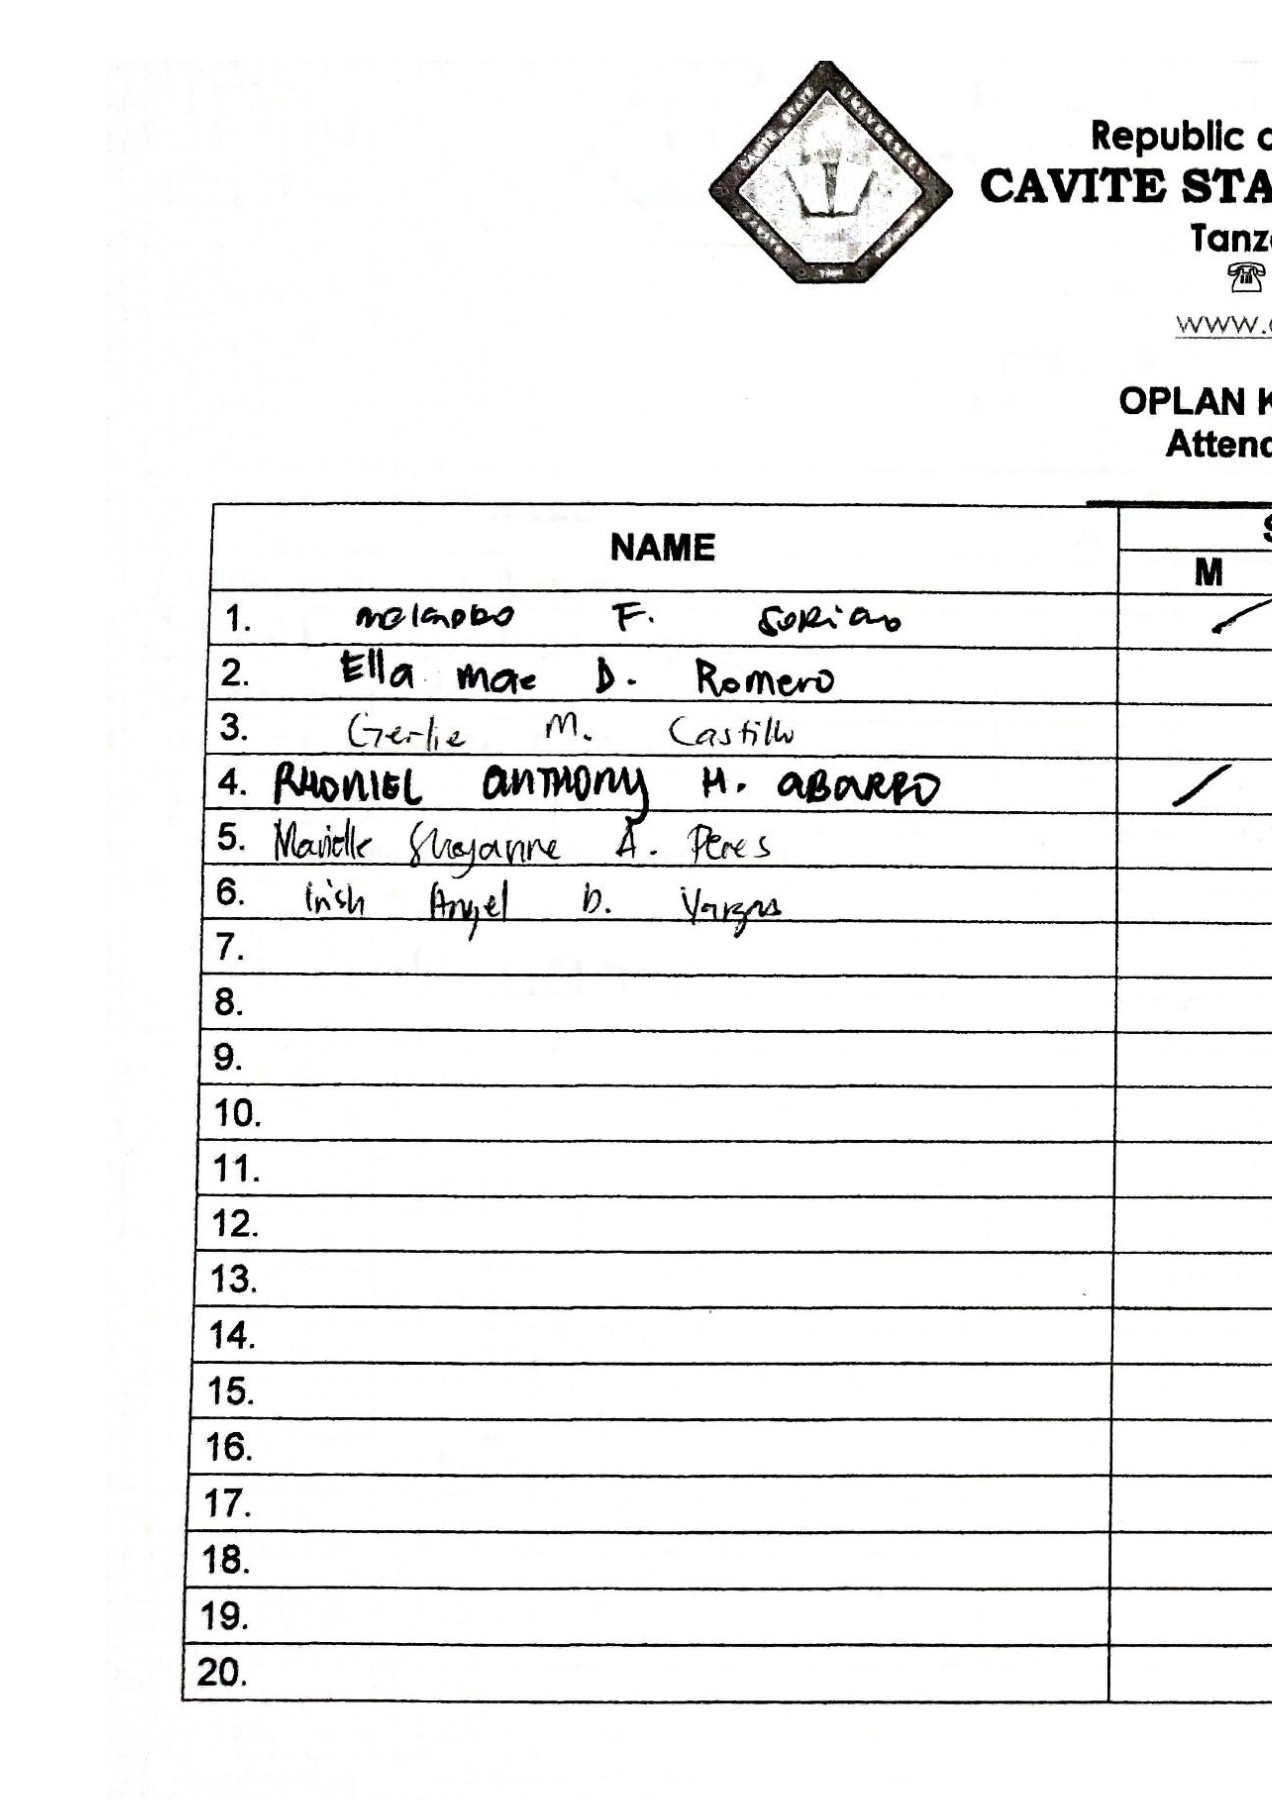 CAVITE STATE UNIVERSITY
Republic o
CAVITE STA
Tanz
www.
OPLAN K
Attend
NAME
M
1. F. Soriano
2. Ella mae D. Romero
3. Gerlie M. Castillo
4. RHONIEL ANTHONY H. ABARRO
5. Marielle Shayanne A. Peres
6. Irish Angel D. Vargas
7.
8.
9.
10.
11.
12.
13.
14.
15.
16.
17.
18.
19.
20.